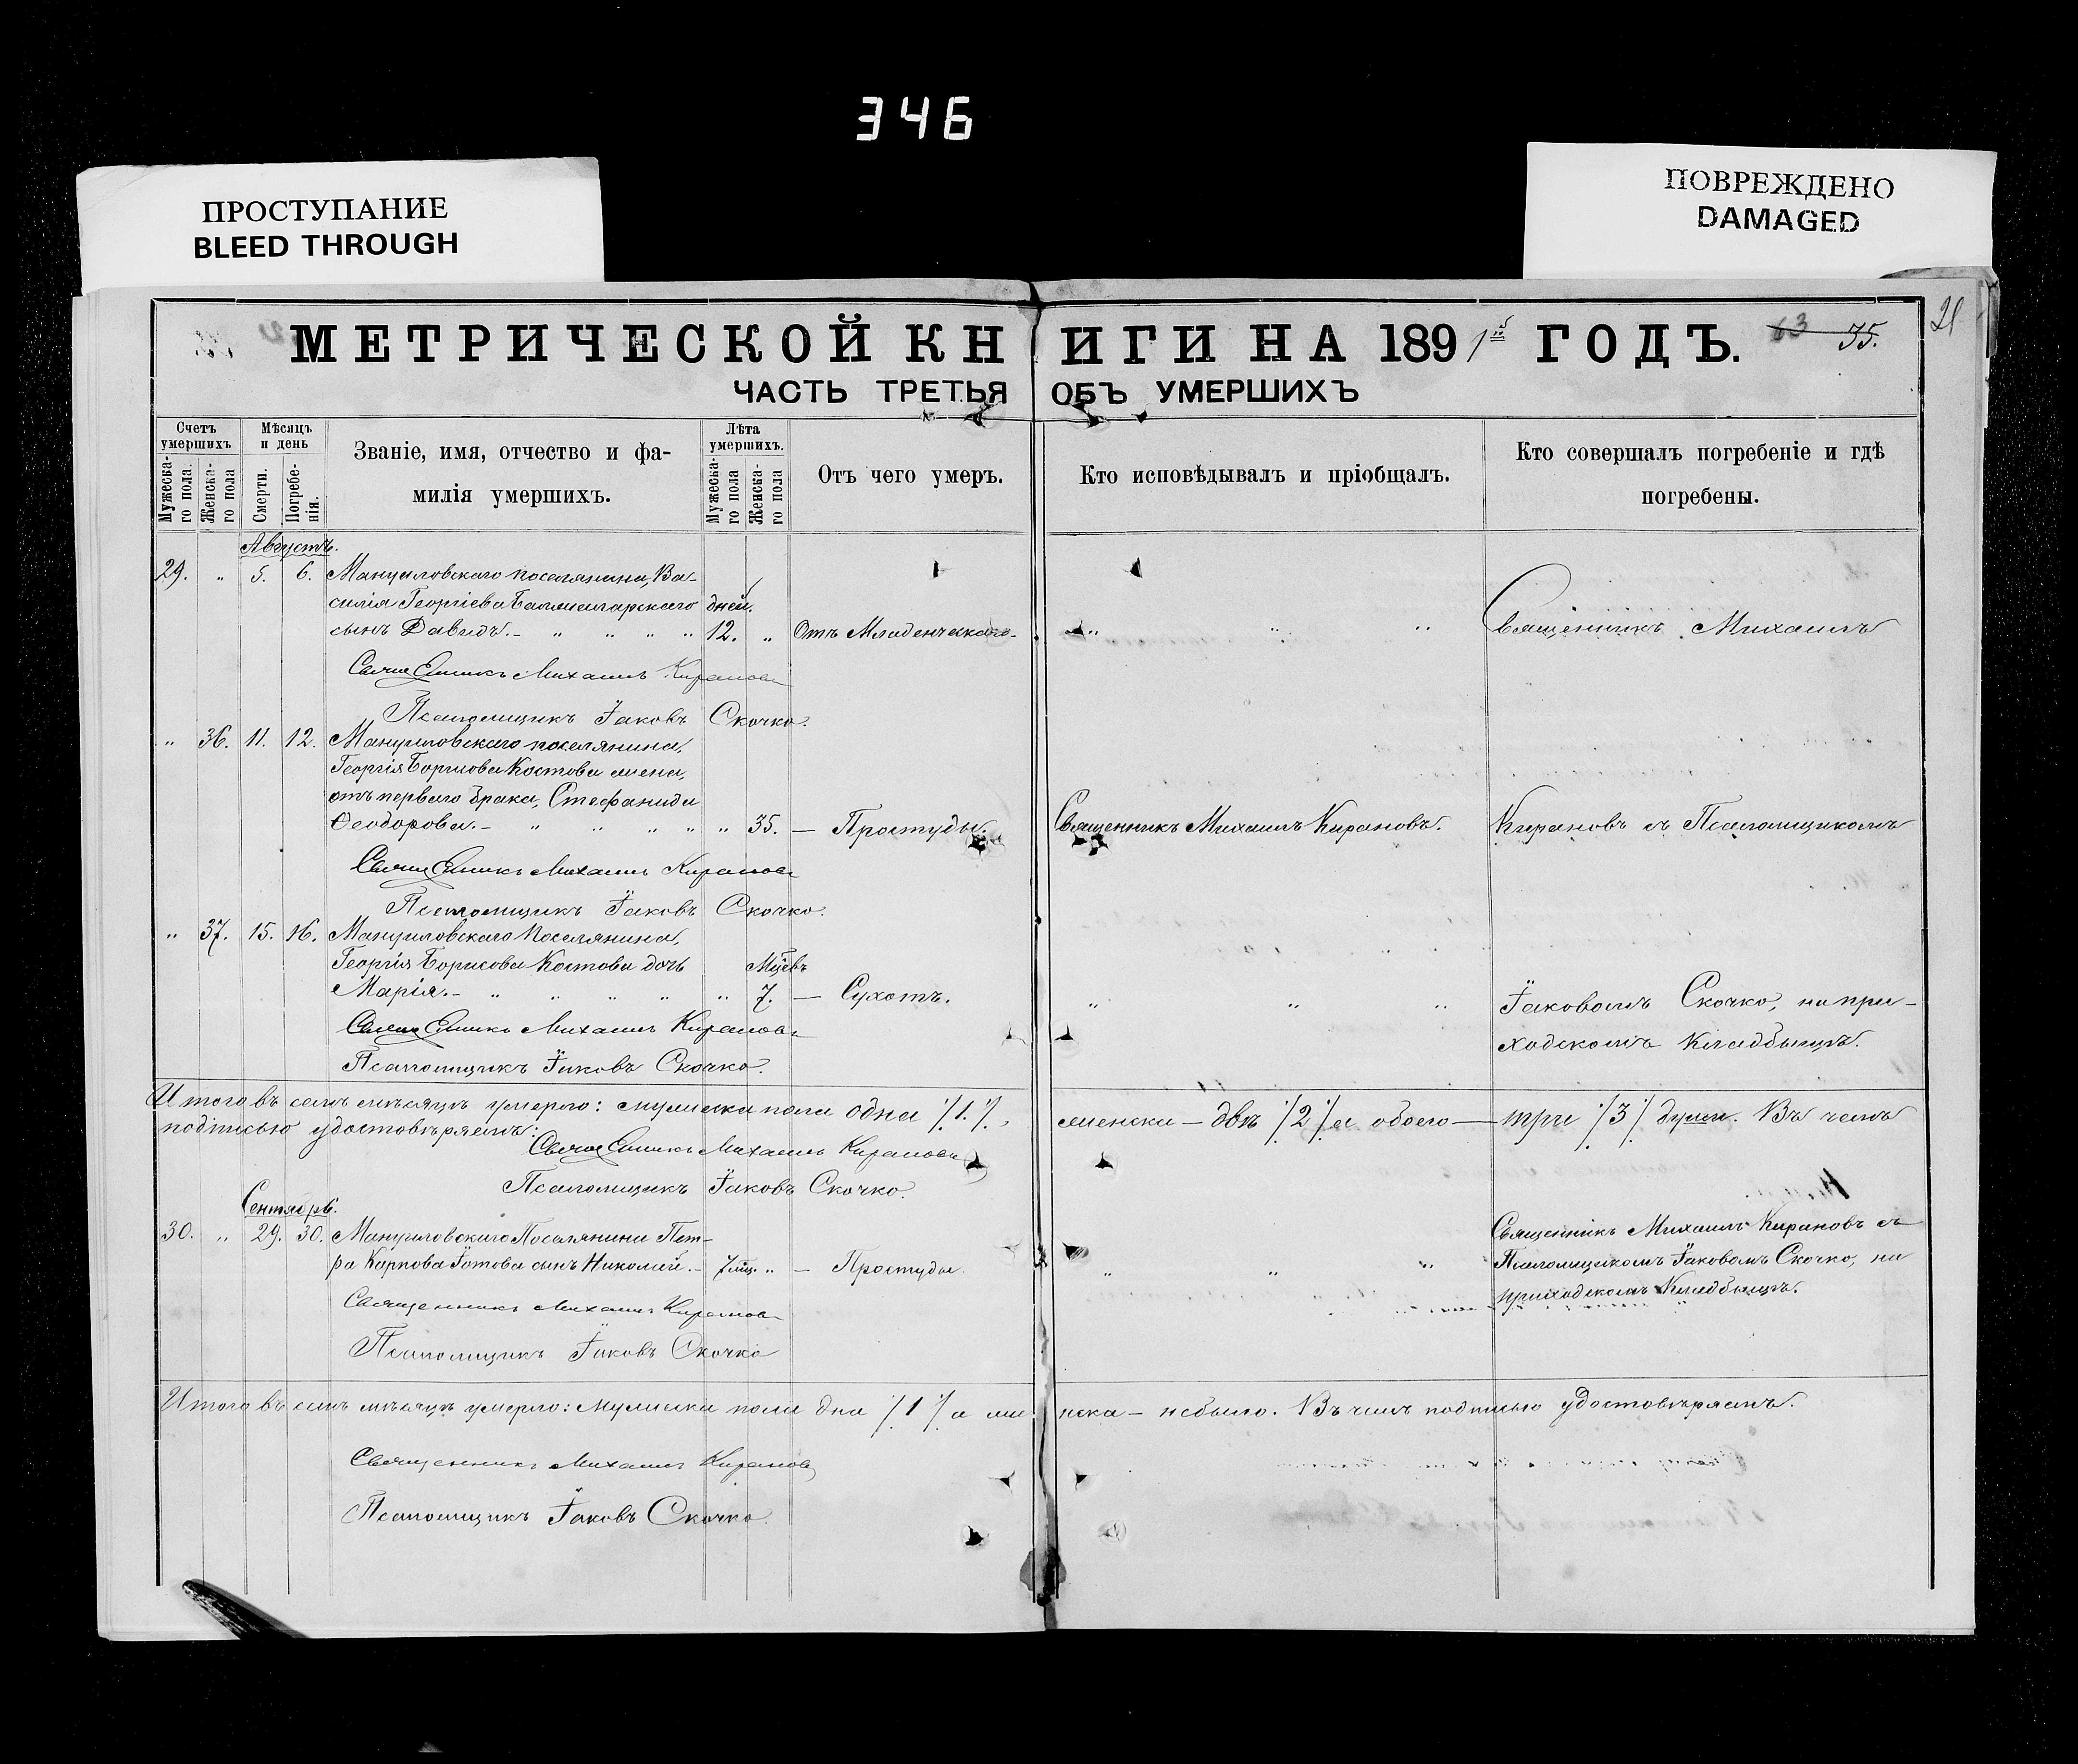 346
ПРОСТУПАНИЕ
BLEED THROUGH
ПОВРЕЖДЕНО
DAMAGED
МЕТРИЧЕСКОЙ КНИГИ НА 1891й ГОДЪ.
63 35.
21
ЧАСТЬ ТРЕТЬЯ ОБЪ УМЕРШИХЪ
Счетъ умершихъ
Мужеска-го пола.
Женска-го пола
Мѣсяцъ и день
Смерти.
Погребе-нія.
Званіе, имя, отчество и фа-
милія умершихъ.
Лѣта умершихъ.
Мужеска-го пола
Женска-го пола
Отъ чего умеръ.
Кто исповѣдывалъ и пріобщалъ.
Кто совершалъ погребеніе и гдѣ
погребены.
Августъ.
29. „ 5. 6. Мануиловскаго поселянина, Ва-
силія Георгіева дней.
сынъ Давидъ.- „ „ „ „ 12. „ Отъ Младенческаго- „ „ „ Священникъ Михаилъ
Священникъ Михаилъ Кирановъ
Псаломщикъ Іаковъ Скочко.
„ 36. 11. 12. Мануиловскаго поселянина,
Георгія Борисова Костова жена,
отъ перваго брака, Стефанида
Ѳеодорова.- „ „ „ „ „ 35. — Простуды. Священникъ Михаилъ Кирановъ. Кирановъ съ Псаломщикомъ
Священникъ Михаилъ Кирановъ
Псаломщикъ Іаковъ Скочко.
„ 37. 15. 16. Мануиловскаго Поселянина,
Георгія Борисова Костова дочь Мцевъ
Марія.- „ „ „ „ „ 7. — Сухотъ. „ „ „ Іаковомъ Скочко, на при-
Священникъ Михаилъ Кирановъ ходскомъ кладбищѣ.
Псаломщикъ Іаковъ Скочко.
Итого въ семъ мѣсяцѣ умерло: мужеска пола одна /1/, женска — двѣ /2/ а обоего — три /3/ души. Въ чемъ
подписью удостовѣряемъ:
Священникъ Михаилъ Кирановъ
Псаломщикъ Іаковъ Скочко.
Сентябрь.
30. „ 29. 30. Мануиловскаго Поселянина Пет- Священникъ Михаилъ Кирановъ съ
ра Карпова Готова сынъ Николай.- 7 мц. „ — Простуды. „ „ „ Псаломщикомъ Іаковомъ Скочко, на
приходскомъ Кладбищѣ.
Священникъ Михаилъ Кирановъ
Псаломщикъ Іаковъ Скочко
Итого въ семъ мѣсяцѣ умерло: мужеска пола дна /1/ а женска — небыло. Въ чемъ подписью удостовѣряемъ.
Священникъ Михаилъ Кирановъ
Псаломщикъ Іаковъ Скочко.